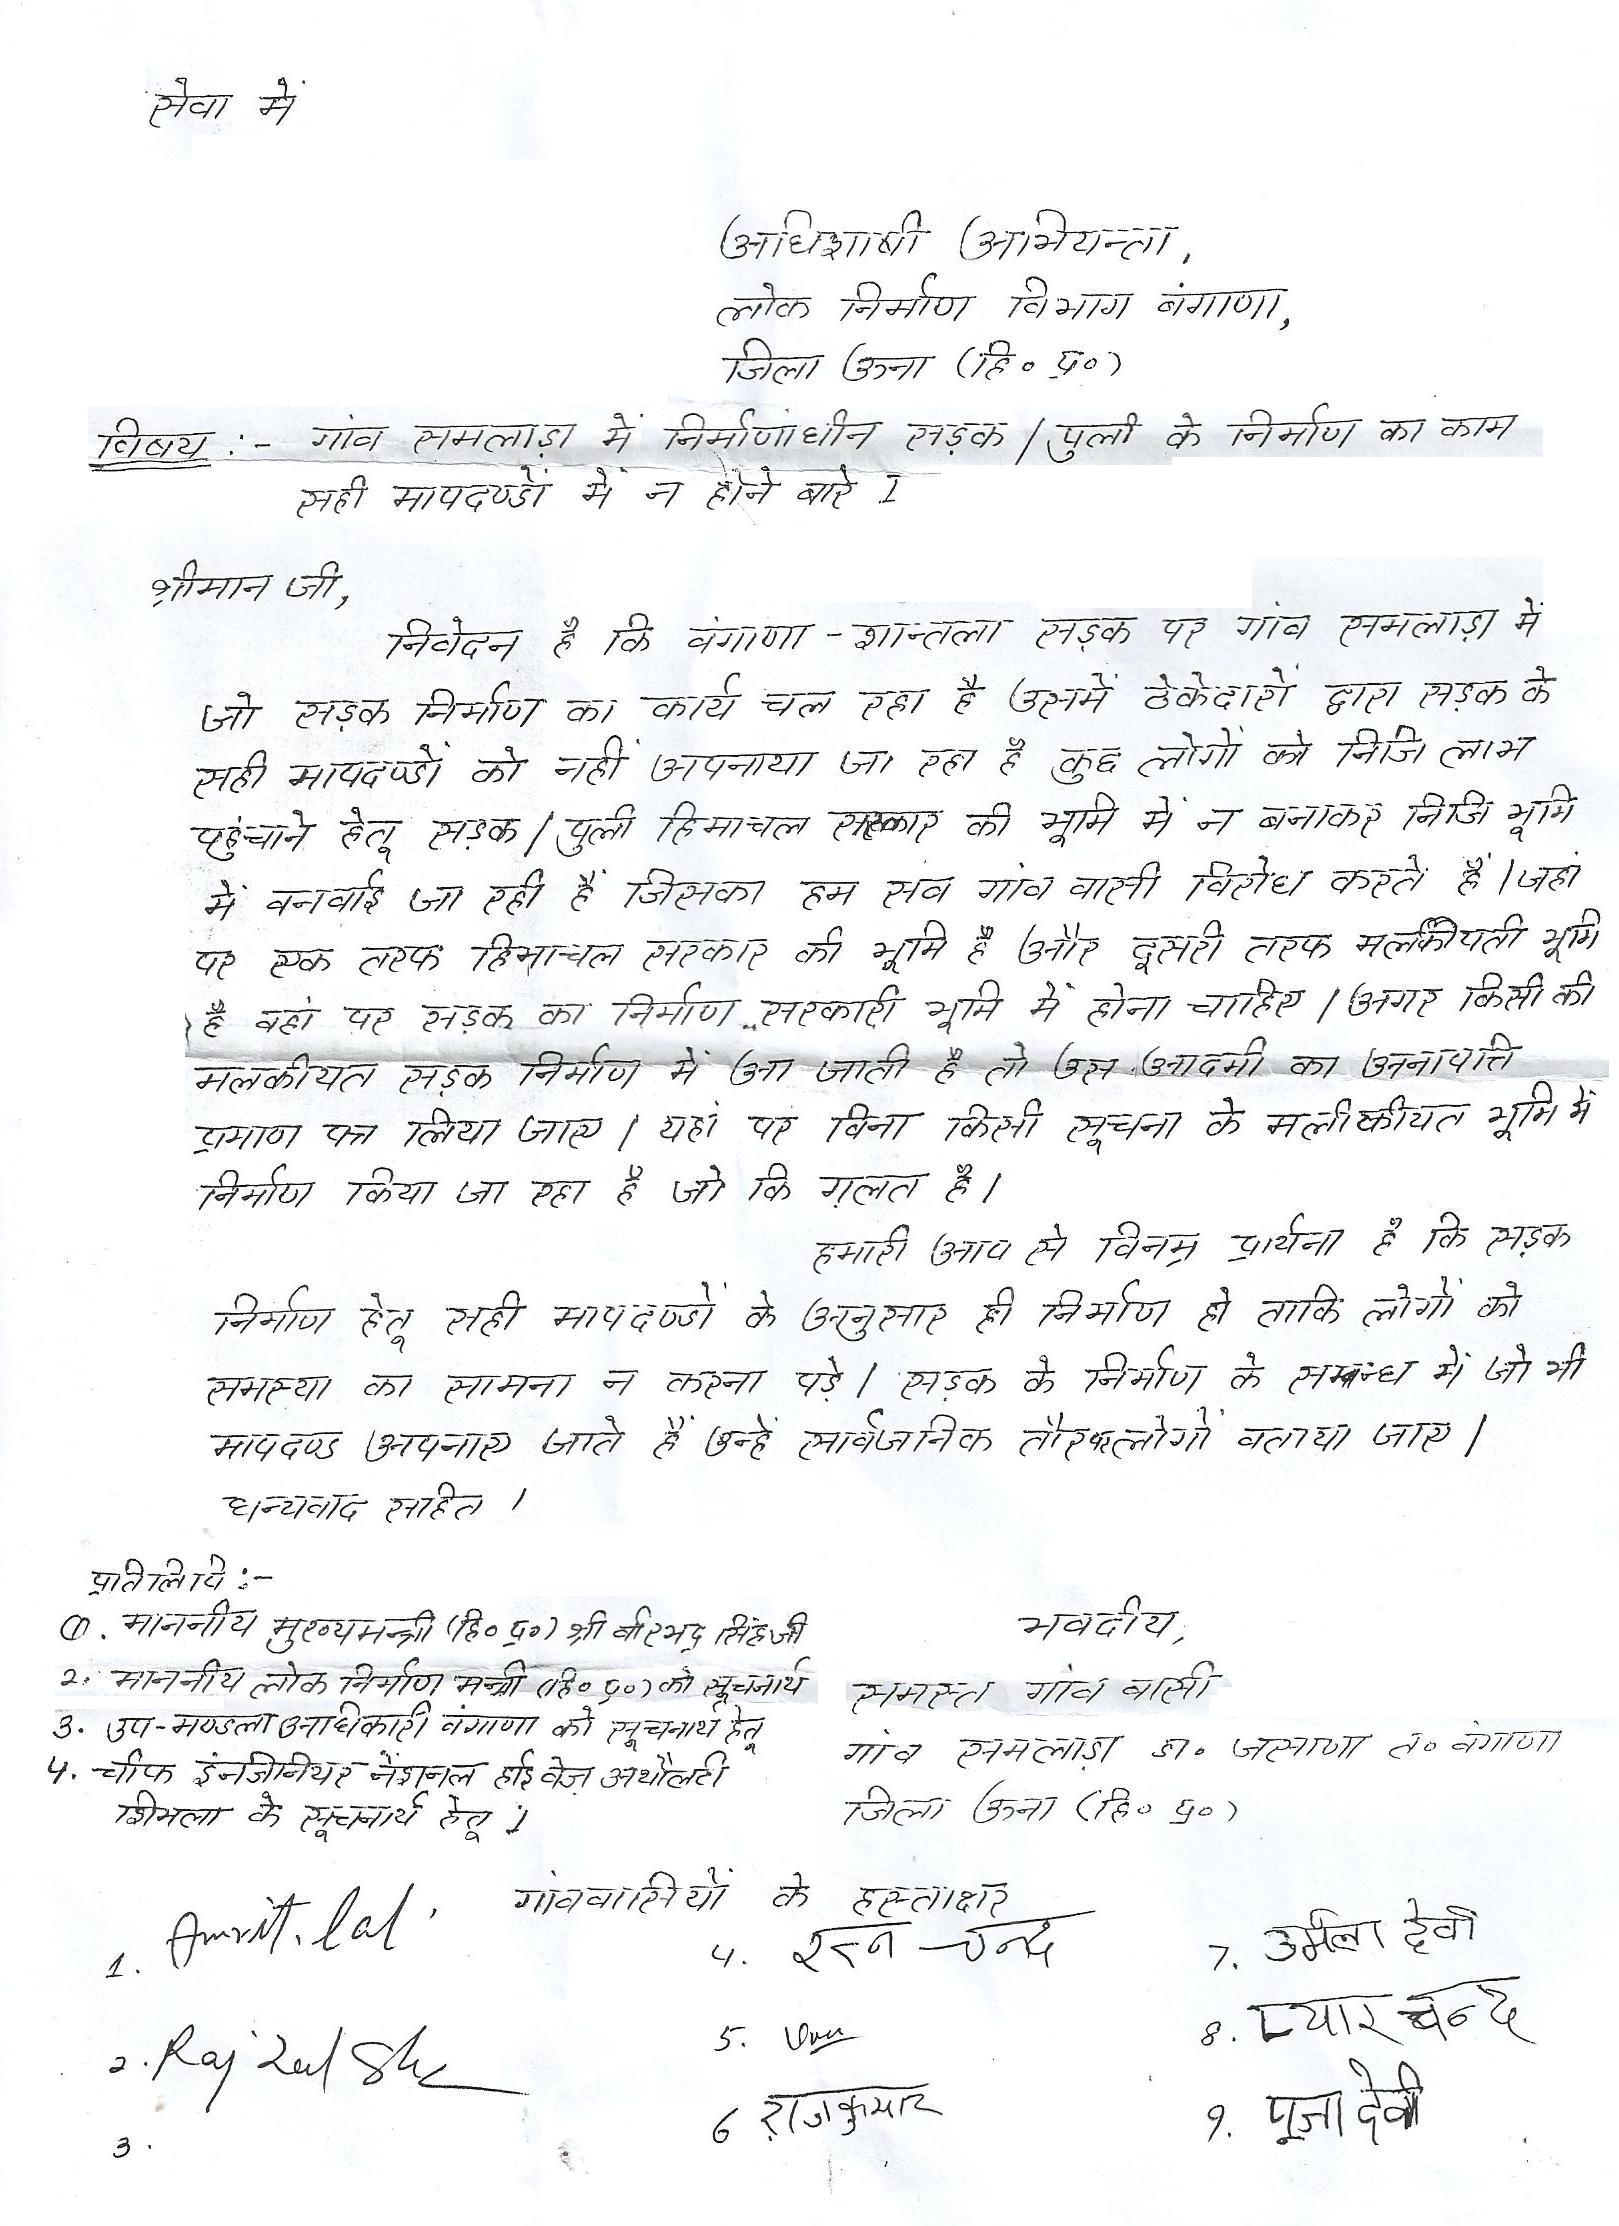 सेवा में
अधिशाषी अभियन्ता,
लोक निर्माण विभाग बंगाणा,
जिला ऊना (हि० प्र०)
विषय :- गांव समलाड़ा में निर्माणाधीन सड़क / पुली के निर्माण का काम
सही मापदण्डों में न होने बारे ।
श्रीमान जी,
निवेदन है कि वंगाणा - शान्तला सड़क पर गांव समलाड़ा में
जो सड़क निर्माण का कार्य चल रहा है उसमें ठेकेदारों द्वारा सड़क के
सही मापदण्डों को नहीं अपनाया जा रहा है कुछ लोगों को निजि लाभ
पहुंचाने हेतू सड़क / पुली हिमाचल सरकार की भूमि में न बनाकर निजि भूमि
में वनवाई जा रही हैं जिसका हम सव गांव वासी विरोध करते हैं । जहां
पर एक तरफ हिमाचल सरकार की भूमि है और दूसरी तरफ मलकीयती भूमि
है वहां पर सड़क का निर्माण सरकारी भूमि में होना चाहिए । अगर किसी की
मलकीयत सड़क निर्माण में आ जाती है तो उस आदमी का अनापत्ति
प्रमाण पत्र लिया जाए । यहां पर विना किसी सूचना के मलीकीयत भूमि में
निर्माण किया जा रहा है जो कि ग़लत है ।
हमारी आप से विनम्र प्रार्थना है कि सड़क
निर्माण हेतू सही मापदण्डों के अनुसार ही निर्माण हो ताकि लोगों को
समस्या का सामना न करना पड़े । सड़क के निर्माण के सम्बन्ध में जो भी
मापदण्ड अपनाए जाते हैं उन्हें सार्वजनिक तौर पर लोगों वताया जाए ।
धन्यवाद सहित ।
प्रतिलिपि :-
1. माननीय मुख्यमन्त्री (हि० प्र०) श्री वीरभद्र सिंह जी
2. माननीय लोक निर्माण मन्त्री (हि० प्र०) को सूचनार्थ
3. उप-मण्डला अधिकारी वंगाणा को सूचनार्थ हेतू
4. चीफ इंनजिनियर नैशनल हाई वेज़ अथौलटी
शिमला के सूचनार्थ हेतू ।
भवदीय,
समस्त गांव वासी
गांव समलाड़ा डा. जसाणा त. वंगाणा
जिला ऊना (हि० प्र०)
गांववासियों के हस्ताक्षर
1. Amrit. lal
2. Raj
3.
4. रत्न चन्द
5.
6 राजकुमार
7. उर्मला देवी
8. प्यार चन्द
9. पूजा देवी